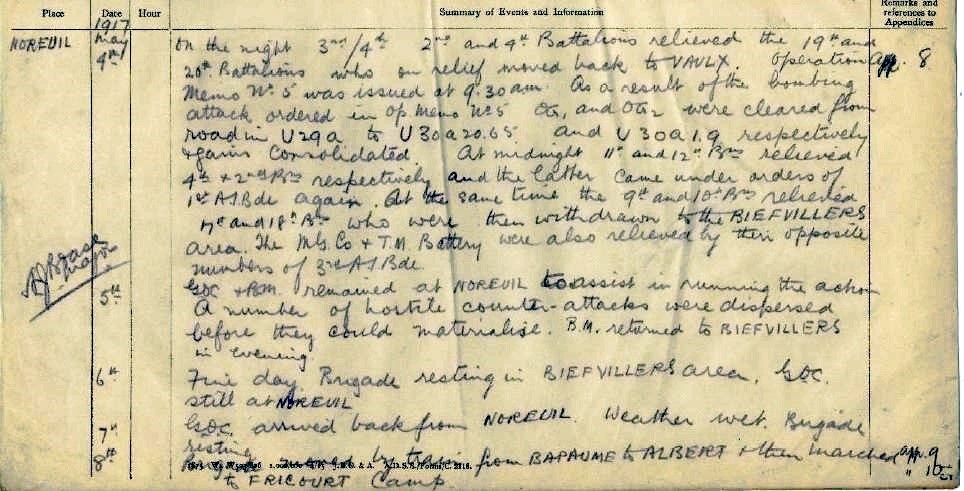 Place Date Hour Summary of Events and Information Remarks and references to Appendices
1917
NOREUIL May 4th On the night 3rd/4th 2nd and 4th Battalions relieved the 19th and
20th Battalions who on relief moved back to VAULX. Operation App. 8
Memo No 5 was issued at 9.30 am. As a result of the bombing
attack ordered in Op Memo No 5 OG1 and OG2 were cleared from
road in U29a to U30a20.65 and U30a1.9 respectively
& gains consolidated. At midnight 11th and 12th Bns relieved
4th & 2nd Bns respectively and the latter came under orders of
1st A.I.Bde again. At the same time the 9th and 10th Bns relieved
17th and 18th Bns who were then withdrawn to the BIEFVILLERS
area. The M.G. Co & T.M. Battery were also relieved by their opposite
numbers of 3rd A.I.Bde.
Major
5th GOC & B.M. remained at NOREUIL to assist in running the action
A number of hostile counter-attacks were dispersed
before they could materialise. B.M. returned to BIEFVILLERS
in evening.
6th Fine day. Brigade resting in BIEFVILLERS area. GOC.
still at NOREUIL
7th GOC. arrived back from NOREUIL. Weather wet. Brigade
resting
8th moved by train from BAPAUME to ALBERT & then marched App. 9
to FRICOURT Camp " 10